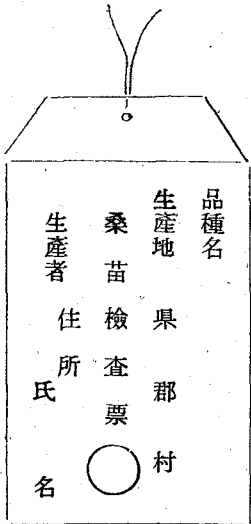 品種名
生產地 県 郡 村
桑苗檢査票
生產者 住所
氏名